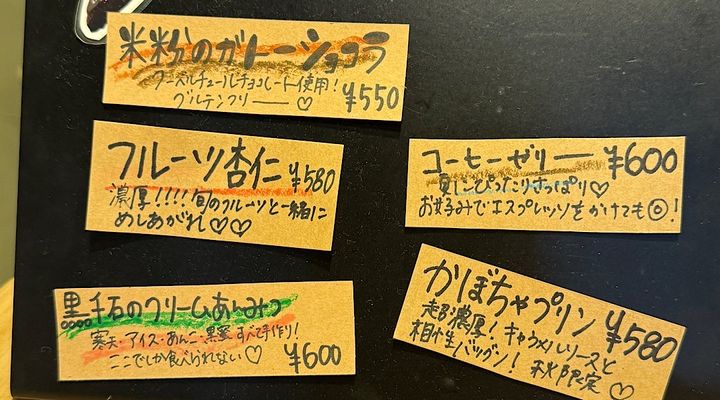 米粉のガトーショコラ
クーベルチュールチョコレート使用!
グルテンフリー♡
¥550
フルーツ杏仁 ¥580
濃厚!!!!旬のフルーツと一緒に
めしあがれ♡♡
黒千石のクリームあんみつ
寒天・アイス・あんこ・黒蜜すべて手作り!
ここでしか食べられない♡
¥600
コーヒーゼリー ¥600
夏にぴったりさっぱり♡
お好みでエスプレッソをかけても◎!
かぼちゃプリン ¥580
超濃厚!キャラメルソースと
相性バツグン!秋限定♡